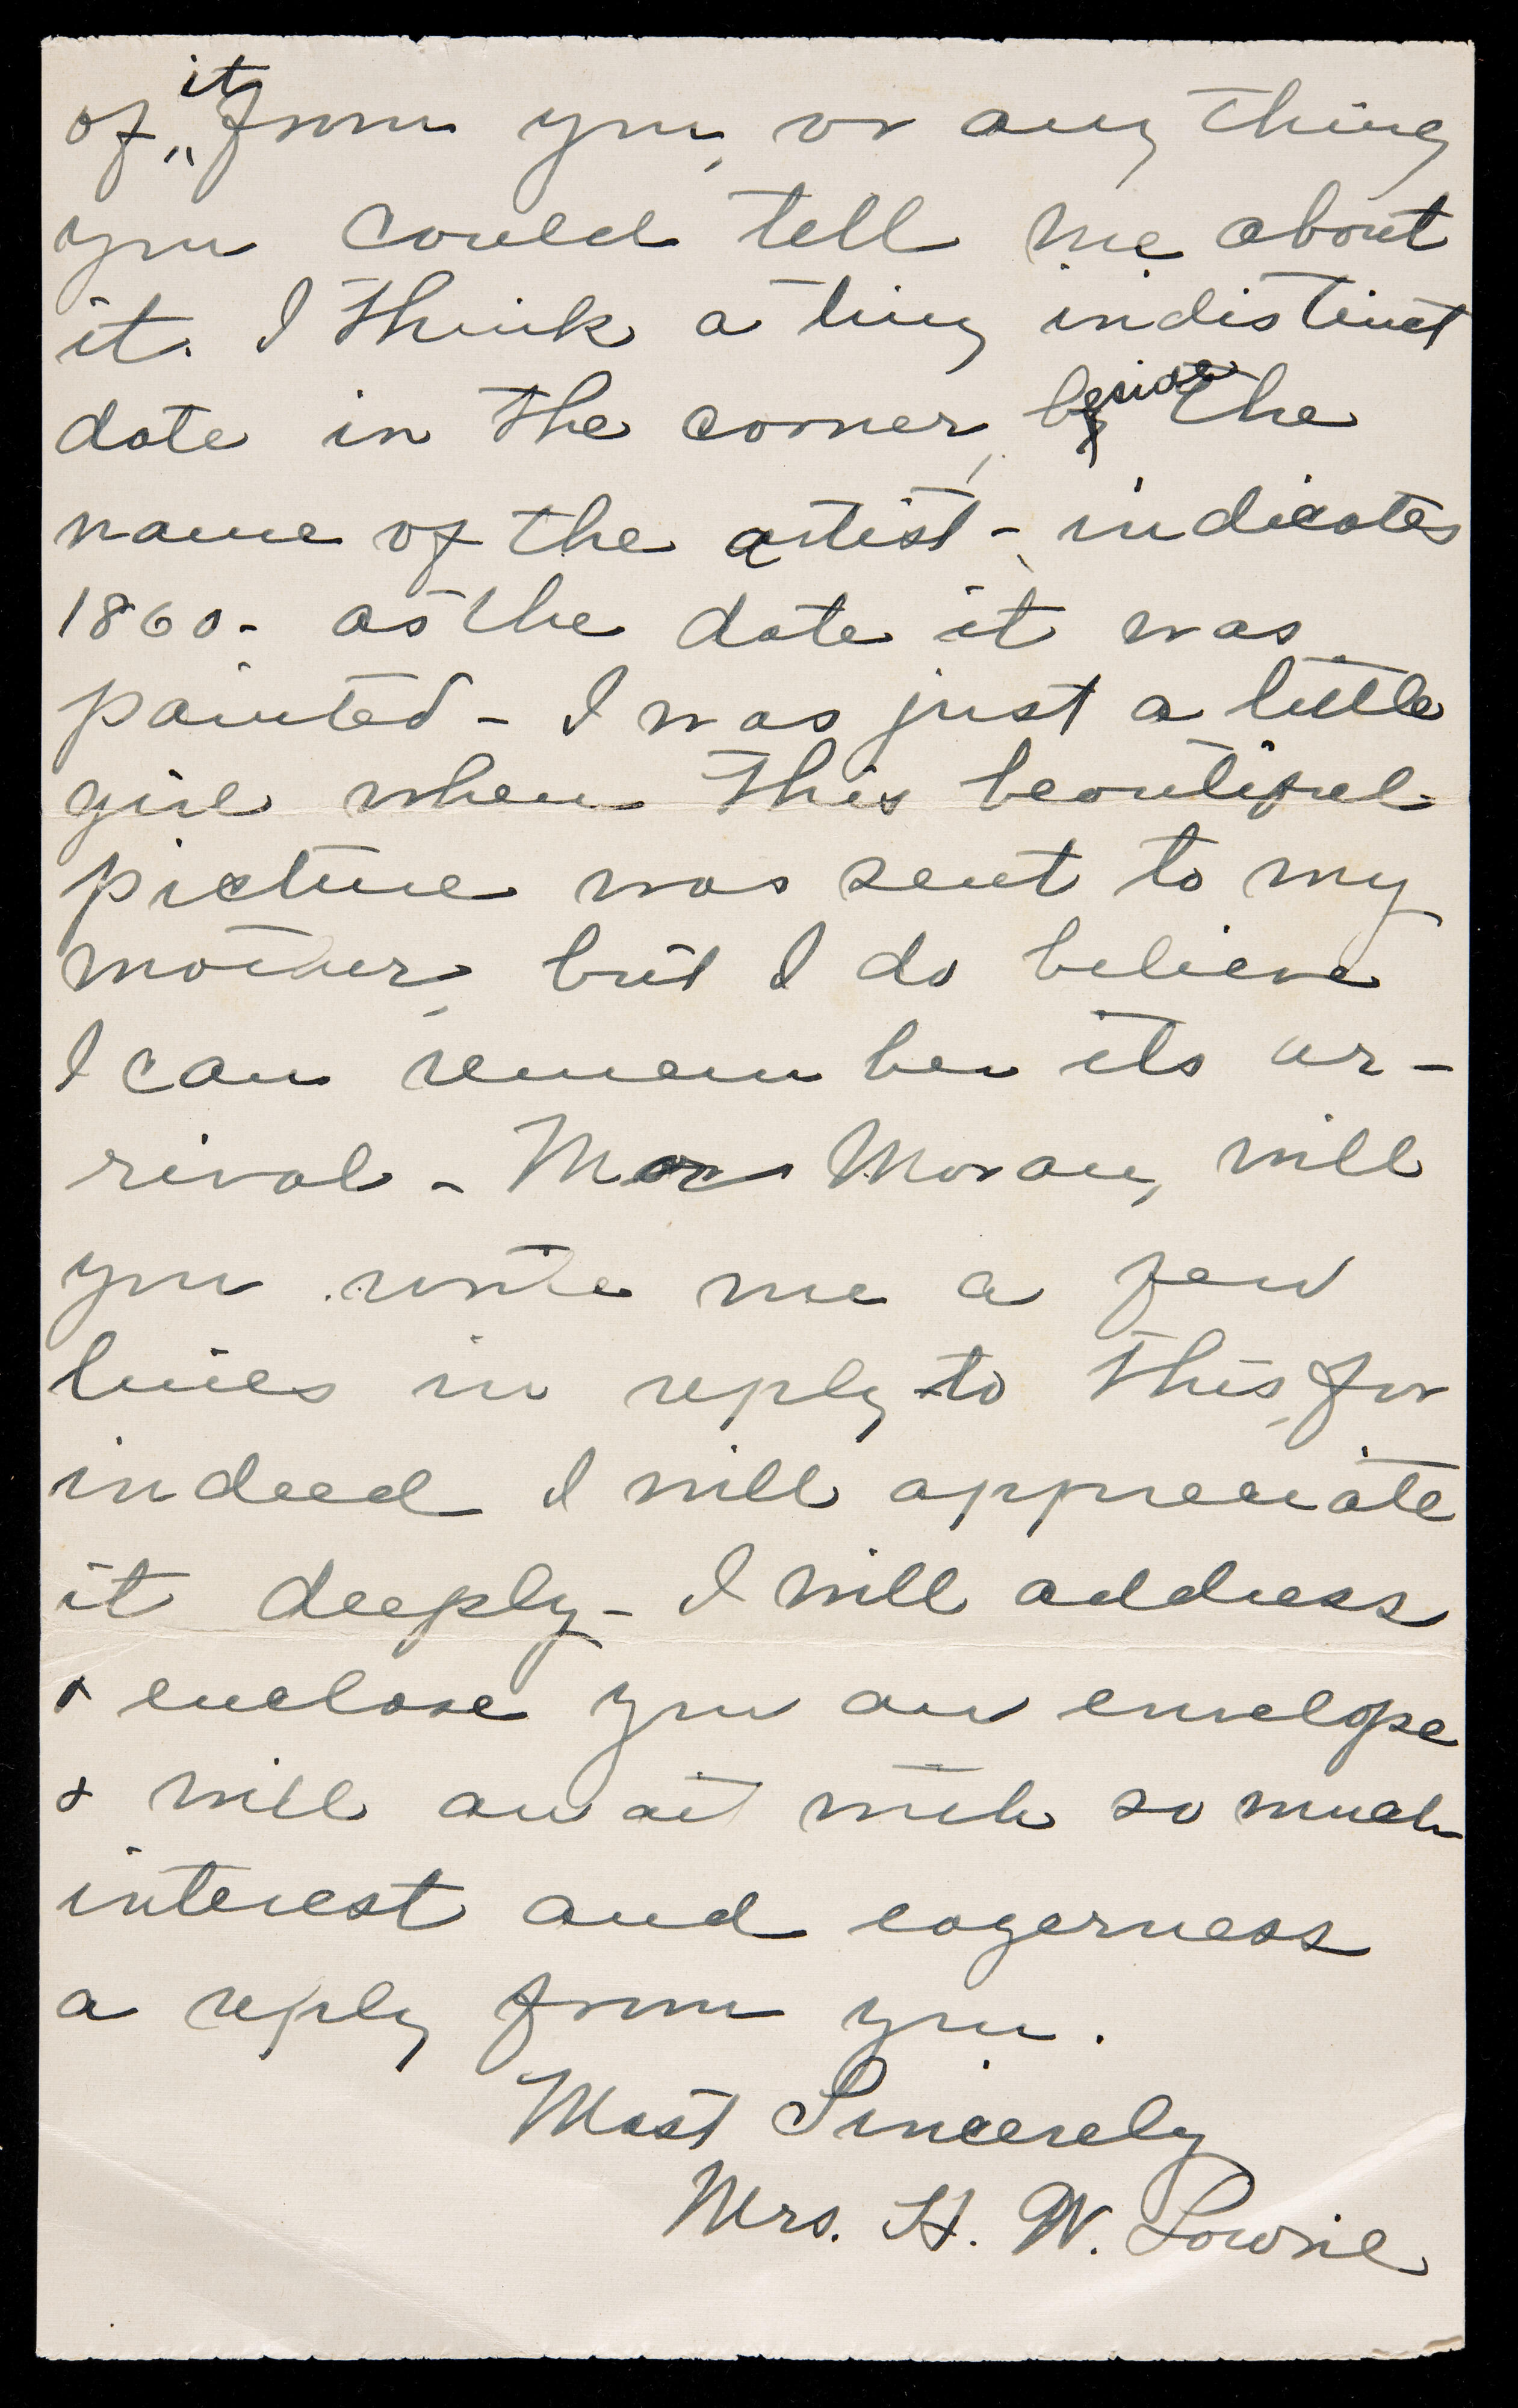 of it from you, or any thing
you could tell me about
it. I think a tiny indistinct
date in the corner, beside the
name of the artist - indicates
1860 - as the date it was
painted - I was just a little
girl when this beautiful
picture was sent to my
mother, but I do believe
I can remember its ar-
rival - Moran, will
you write me a few
lines in reply to this, for
indeed I will appreciate
it deeply - I will address
& enclose you an envelope
& will await with so much
interest and eagerness
a reply from you.
Most Sincerely
Mrs. H. W. Lowrie